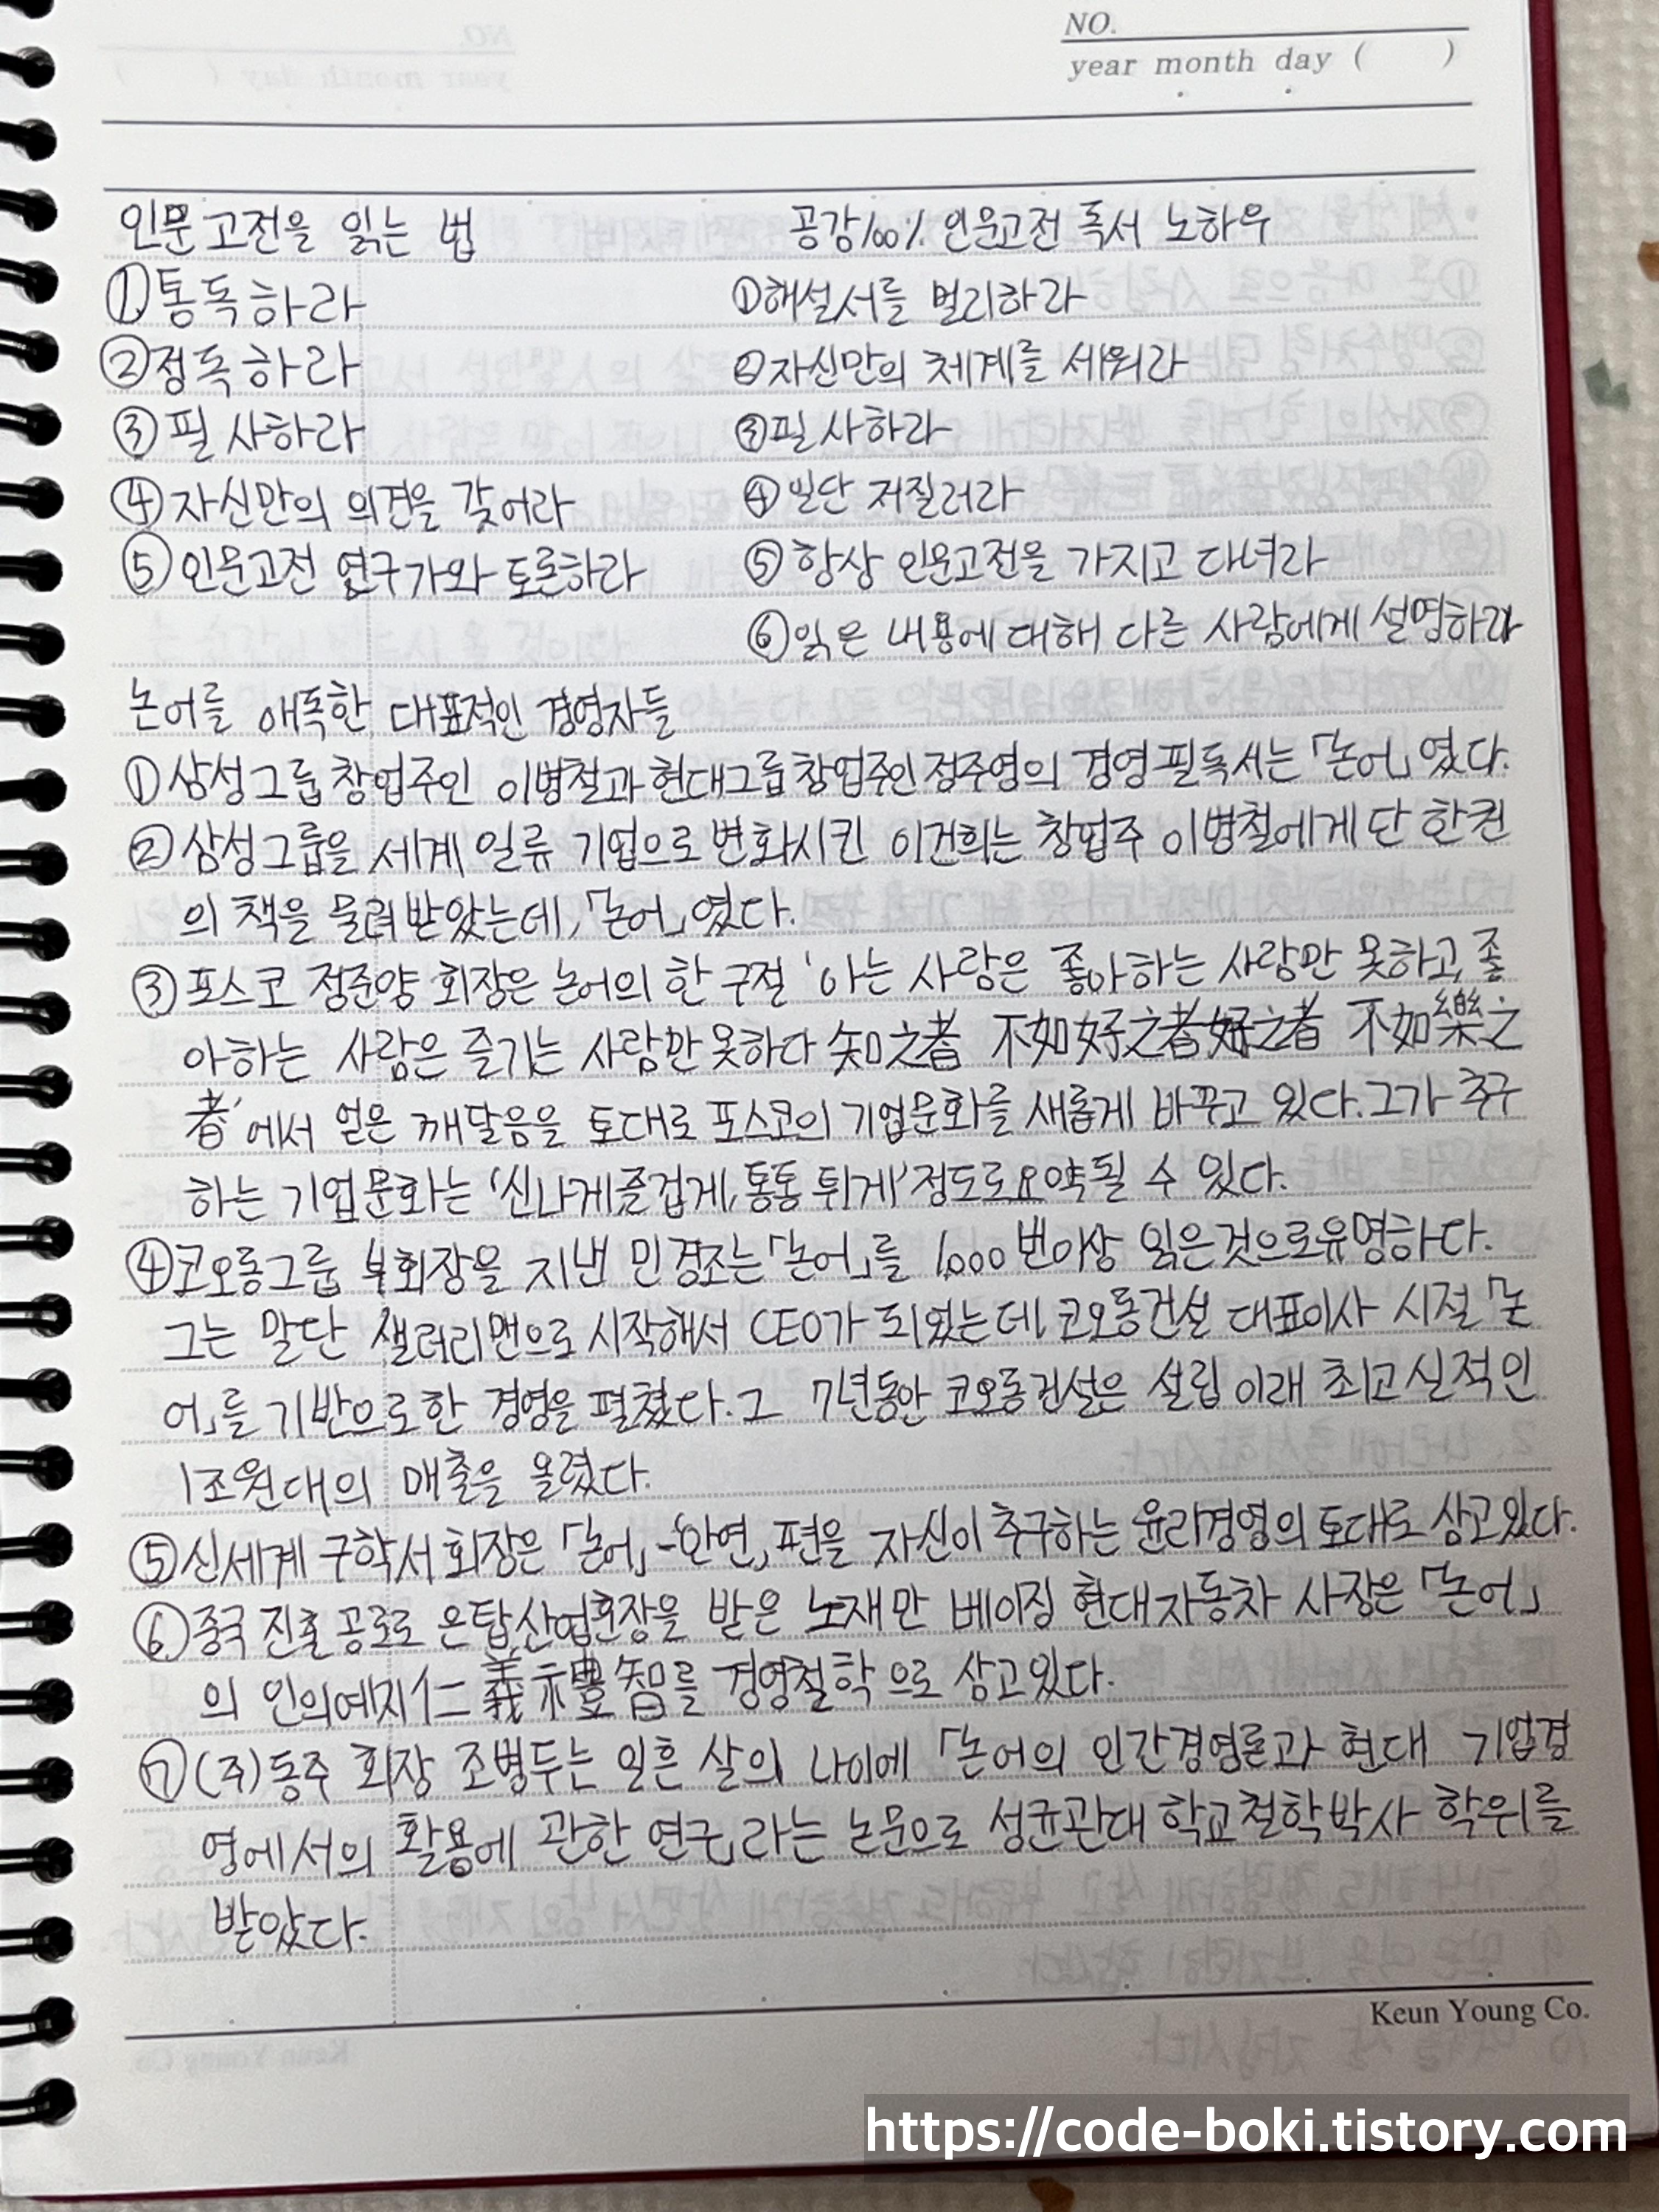 NO.
year month day ( )
인문고전을 읽는 법
①통독하라
②정독하라
③필사하라
④자신만의 의견을 갖어라
⑤인문고전 연구가와 토론하라
공감100% 인문고전 독서 노하우
①해설서를 멀리하라
②자신만의 체계를 세워라
③필사하라
④일단 저질러라
⑤항상 인문고전을 가지고 다녀라
⑥읽은 내용에 대해 다른 사람에게 설명하라
논어를 애독한 대표적인 경영자들
①삼성그룹 창업주인 이병철과 현대그룹 창업주인 정주영의 경영 필독서는 「논어」였다.
②삼성그룹을 세계 일류 기업으로 변화시킨 이건희는 창업주 이병철에게 단 한권
의 책을 물려받았는데, 「논어」였다.
③포스코 정준양 회장은 논어의 한 구절 '아는 사람은 좋아하는 사람만 못하고, 좋
아하는 사람은 즐기는 사람만 못하다 知之者 不如好之者 好之者 不如樂之
者'에서 얻은 깨달음을 토대로 포스코의 기업문화를 새롭게 바꾸고 있다. 그가 추구
하는 기업문화는 '신나게, 즐겁게, 통통 튀게' 정도로 요약될 수 있다.
④코오롱그룹 부회장을 지낸 민경조는 「논어」를 1,000번이상 읽은것으로 유명하다.
그는 말단 샐러리맨으로 시작해서 CEO가 되었는데, 코오롱건설 대표이사 시절 「논
어」를 기반으로 한 경영을 펼쳤다. 그 7년동안 코오롱건설은 설립 이래 최고 실적인
1조원대의 매출을 올렸다.
⑤신세계 구학서 회장은 「논어」-「안연」편을 자신이 추구하는 윤리경영의 토대로 삼고있다.
⑥중국 진출 공로로 은탑산업훈장을 받은 노재만 베이징 현대자동차 사장은 「논어」
의 인의예지仁義禮智를 경영철학으로 삼고있다.
⑦(주)동주 회장 조병두는 일흔 살의 나이에 「논어의 인간경영론과 현대 기업경
영에서의 활용에 관한 연구」라는 논문으로 성균관대학교 철학박사 학위를
받았다.
Keun Young Co.
https://code-boki.tistory.com